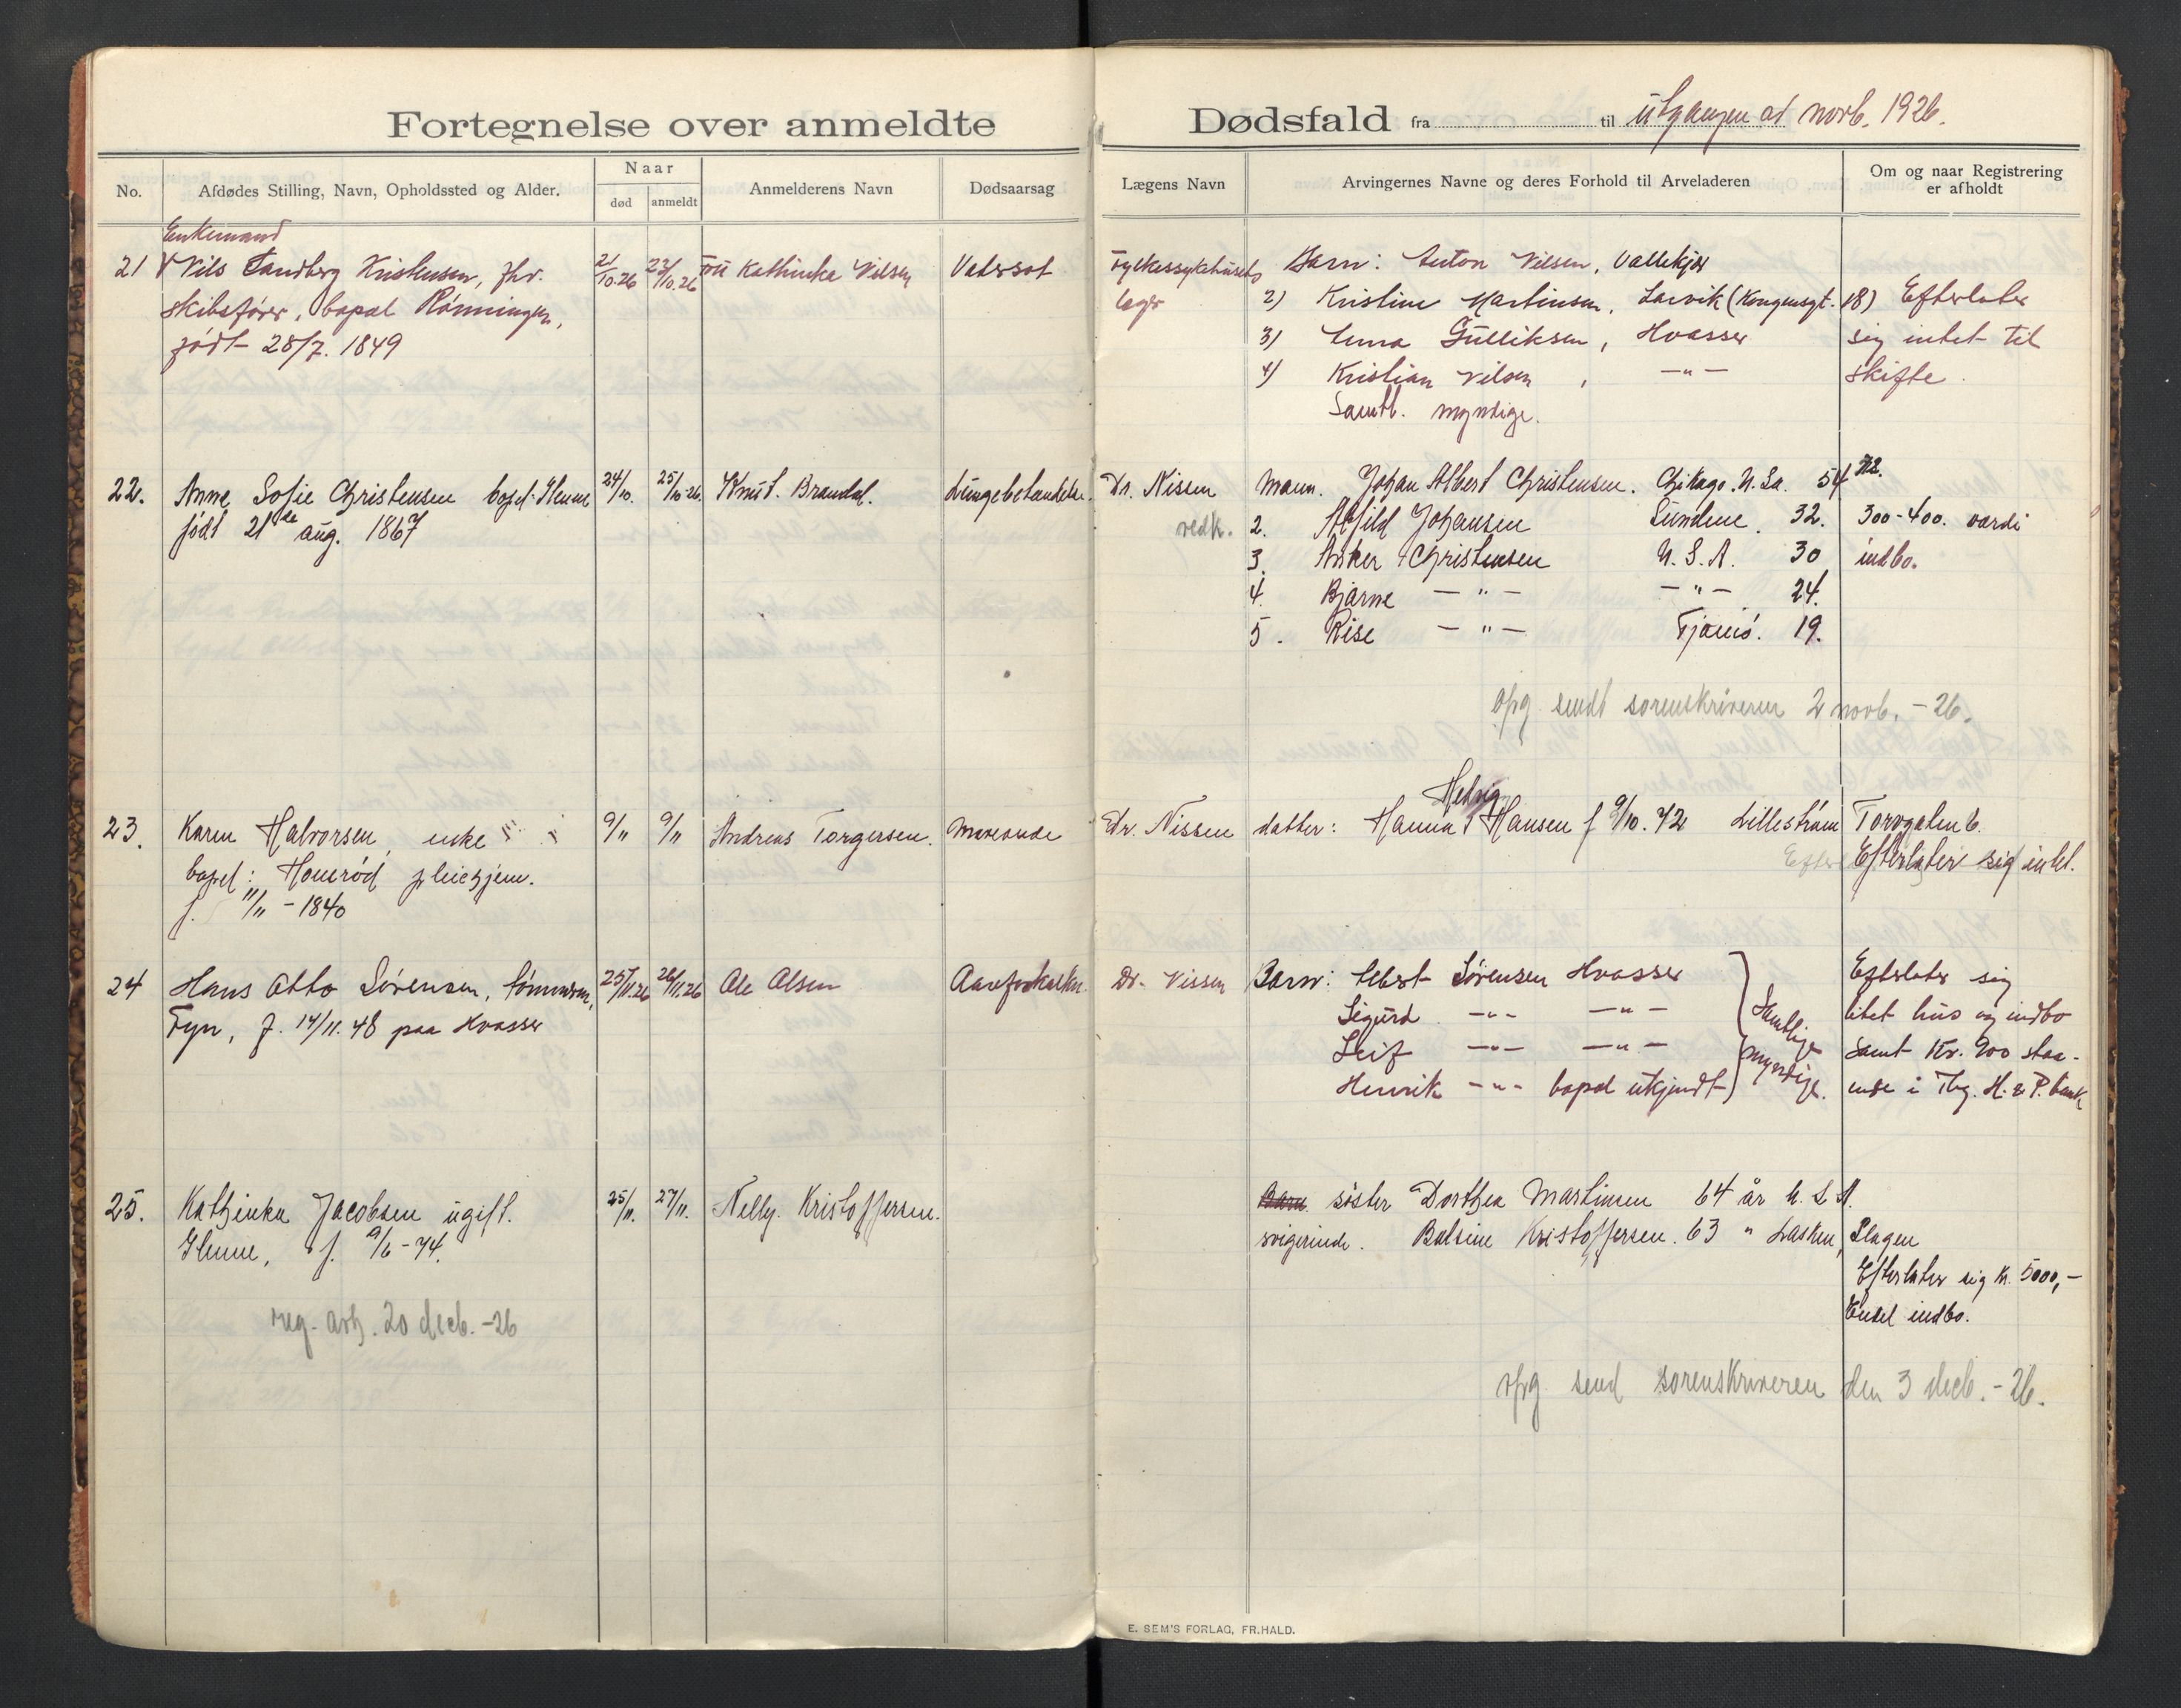 Fortegnelse over anmeldte
Dødsfald fra til utgangen af novb. 1926.
No.
Afdødes Stilling, Navn, Opholdssted og Alder.
Naar
død
anmeldt
Anmelderens Navn
Dødsaarsag
Lægens Navn
Arvingernes Navne og deres Forhold til Arveladeren
Om og naar Registrering
er afholdt
Enkemand
21 Nils Sandberg Kristensen, fhv.
skibsfører, bopæl Rønningen,
født 28/7. 1849
21/10.26
22/10.26
Fru Kathinka Nilsen
Vatersot
Fylkessykehusets
læge
Barn: Anton Nilsen, Vallekjær
2) Kristine Martinsen, Larvik (Kongensgt. 18)
3) Gulliksen, Hvasser
4) Kristian Nilsen, — " —
Samtl. myndige.
Efterlater
sig intet til
skifte.
22. Anne Sofie Christensen bopel: Glenne
født 21de aug. 1867
24/10.
25/10-26.
Knut. Brandal.
Lungebetændelse.
Dr. Nissen
vedk.
Mann. Johan Albert Christensen. Chikago. U. Sa. 54
2. Alfild Johansen Sundene. 32.
3. Anker Christensen U. S. A. 30
4. Bjarne — " — — " — 24.
5. Rise — " — Tjømø. 19.
300-400. værdi
indbo.
opg. sendt sorenskriveren 2 novb. - 26.
23. Karen Halvorsen, enke
bopel: Honerød pleiehjem.
f. 11/11 - 1840
9/11
9/11
Andreas Torgersen.
Maveonde
Dr. Nissen
Hedvig
datter: Hanna Hansen f 9/10. 42 Lillestrøm Torvgaten 6.
Efterlater sig intet.
24 Hans Otto Sørensen, tømmerm,
Fyn, f. 14/11. 48 paa Hvasser
25/11.26
26/11.26
Ole Olsen
Aareforkalkn.
Dr. Nissen
Barn: Albert Sørensen Hvasser
Sigurd — " — — " —
Leif — " — — " —
Henrik — " — bopæl utkjendt
Samtlige
myndige.
Efterlater sig
litet hus og indbo
samt Kr. 900 staa-
ende i Tbg. H. & P. bank
25. Kathinka Jacobsen ugift.
Glenne, f. 9/6 - 74.
25/11.
27/11.
Nelly. Kristoffersen.
Barn søster Dorthea Martinsen 64 år U. S. A.
svigerinde. Balsine Kristoffersen. 63 " Lasken, Slagen
Efterlater sig kr. 5000,-
Endel indbo.
reg. avh. 20 decb. - 26
opg. send sorenskriveren den 3 decb. - 26.
E. SEM'S FORLAG, FR.HALD.